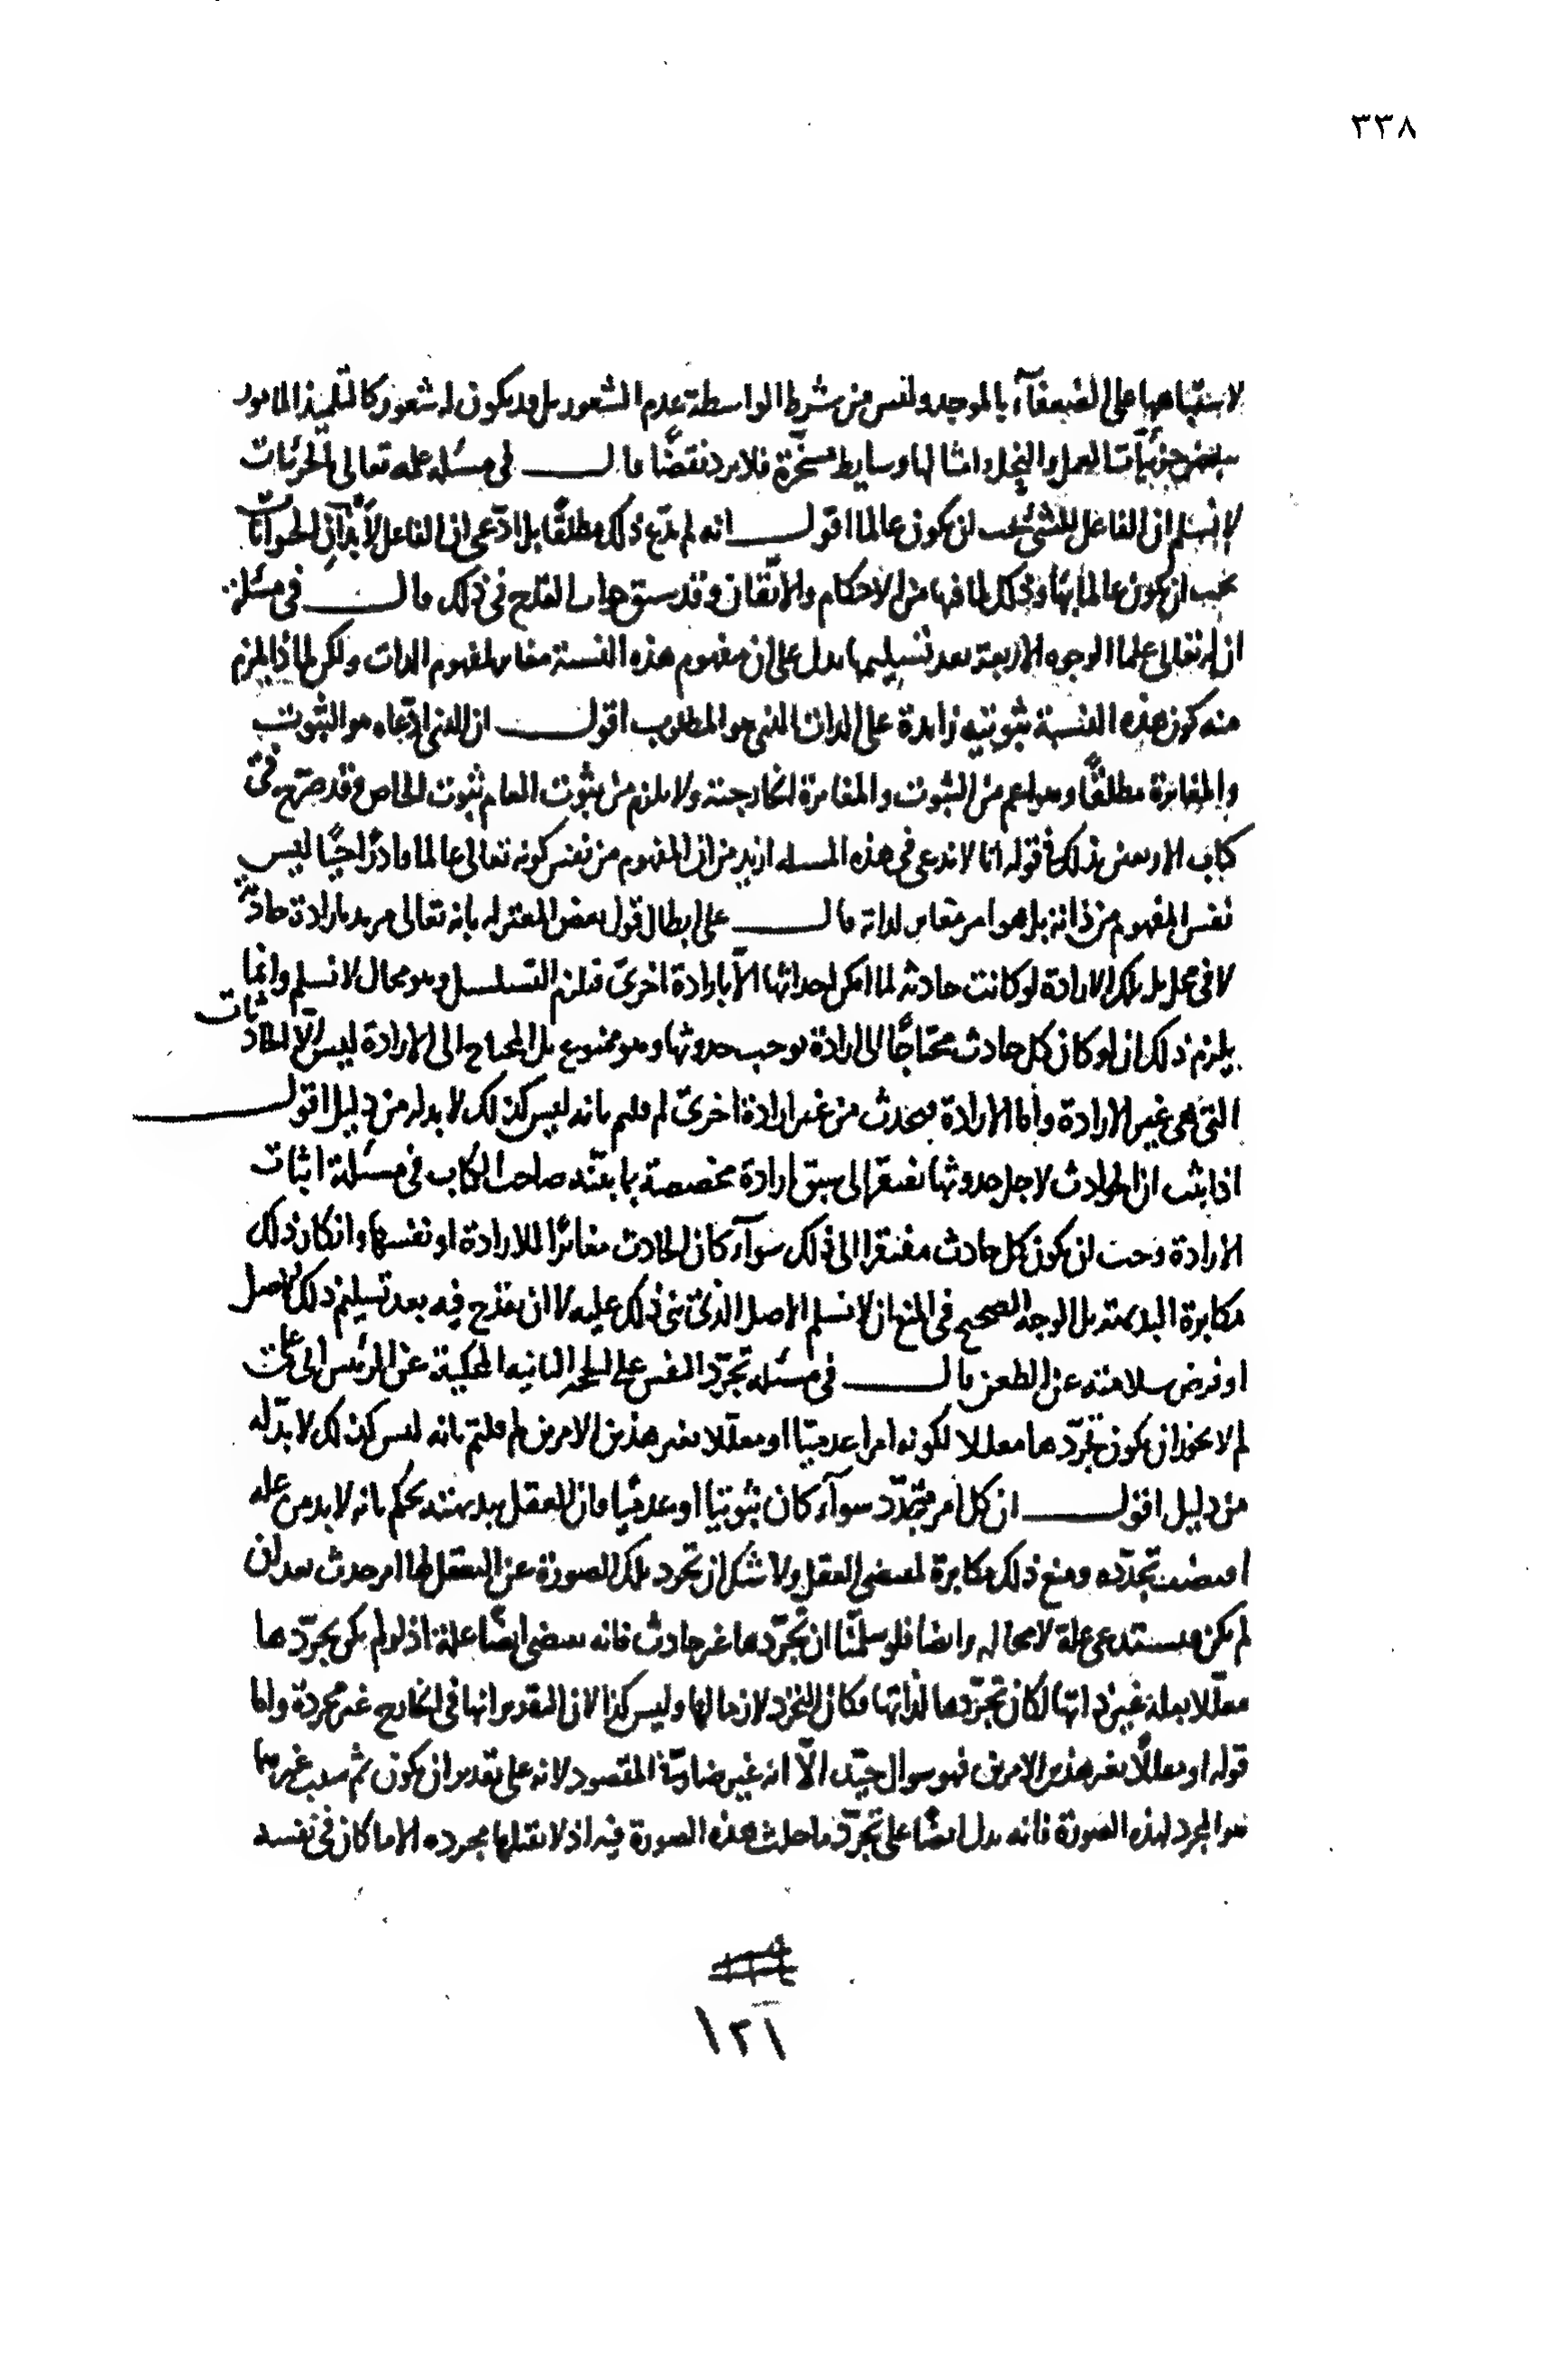 ٣٣٨
لاشتباهها على الضعفاء بالموجد وليس من شرط الواسطة عدم الشعور بل قد يكون له شعور كالتلميذ المأمور
ببعض جزئيات العمل والنحل وامثالها وسايط مسخرة فلا يرد نقضًا قال في مسئله علمه تعالى بالجزئيات
لا نسلم ان الفاعل للشيء يجب ان يكون عالما اقول انه لم يدّع ذلك مطلقًا بل ادّعى ان الفاعل لأبدان الحيوانات
يجب ان يكون عالما بها وذلك لما فيها من الاحكام والاتقان وقد سبق جواب القدح في ذلك قال في مسئلة
ان له تعالى علما الوجوه الاربعة بعد تسليمها يدل على ان مفهوم هذه النسبة مغاير لمفهوم الذات ولكن لماذا يلزم
منه كون هذه النسبة ثبوتيه زايدة على الذات الذي هو المطلوب اقول ان الذي ادّعاه هو الثبوت
والمغايرة مطلقًا وهو اعم من الثبوت والمغايرة الخارجية ولا يلزم من ثبوت العام ثبوت الخاص وقد صرّح في
كتاب الاربعين بذلك في قوله انا لا ندعي في هذه المسله ازيد من ان المفهوم من نفس كونه تعالى عالما قادرًا حيًا ليس
نفس المفهوم من ذاته بل هو امر مغاير لذاته قال على ابطال قول بعض المعتزله بانه تعالى مريد بارادة حادثة
لا في محل بل تلك الارادة لو كانت حادثه لما امكن احداثها الّا بارادة اخرىٰ فيلزم التسلسل وهو محال لا نسلم وانما
يلزم ذلك ان لو كان كل حادث محتاجًا الى ارادة توجب حدوثها وهو ممنوع بل المحتاج الى الارادة ليس الّا الحادثات
التي هي غير الارادة واما الارادة فتحدث من غير ارادة اخرىٰ لم قلتم بانه ليس كذلك لا بد له من دليل اقول
اذا ثبت ان الحوادث لاجل حدوثها تفتقر الى سبق ارادة مخصصة بما بيّنه صاحب الكتاب في مسئلة اثبات
الارادة وجب ان يكون كل حادث مفتقرا الى ذلك سوآء كان الحادث مغايرًا للارادة او نفسها وانكار ذلك
مكابرة البديهة بل الوجه الصحيح في المنع ان لا نسلم الاصل الذي بنى ذلك عليه لا ان يقدح فيه بعد تسليم ذلك الاصل
او فرض سلامته عن الطعن قال في مسئله تجرّد النفس على الحجه الثانيه المحكية عن الرئيس ابي علي
لم لا يجوز ان يكون تجرّدها معللا لكونه امرا عدميّا او معلّلا بغير هذين الامرين لم قلتم بانه ليس كذلك لا بدّ له
من دليل اقول ان كل امر متجدّد سوآء كان ثبوتيا او عدميّا فان العقل ببديهته يحكم بانه لا بد من علة
اقتضت تجدّده ومنع ذلك مكابرة لمقتضى العقل ولا شك ان تجرد تلك الصورة عن التعقل لها امر حدث بعد ان
لم يكن فيستدعي علة لا محاله وايضا فلو سلّمنا ان تجرّدها غير حادث فانه يقتضي ايضًا علة اذ لو لم يكن تجرّدها
معلّلا بعلة غير ذاتها لكان تجرّدها لذاتها فكان التجرد لازما لها وليس كذا لان التقدير انها في الخارج غير مجردة واما
قوله او معللًا بغير هذين الامرين فهو سوال جيّد الّا انه غير ضارّ في المقصود لانه على تقدير ان يكون ثم سبب غيرهما
هو المجرد لهذه الصورة فانه يدل ايضًا على تجرّد ما حلت هذه الصورة فيه اذ لا نعقلها مجرده الا ما كان في نفسه
١٢١